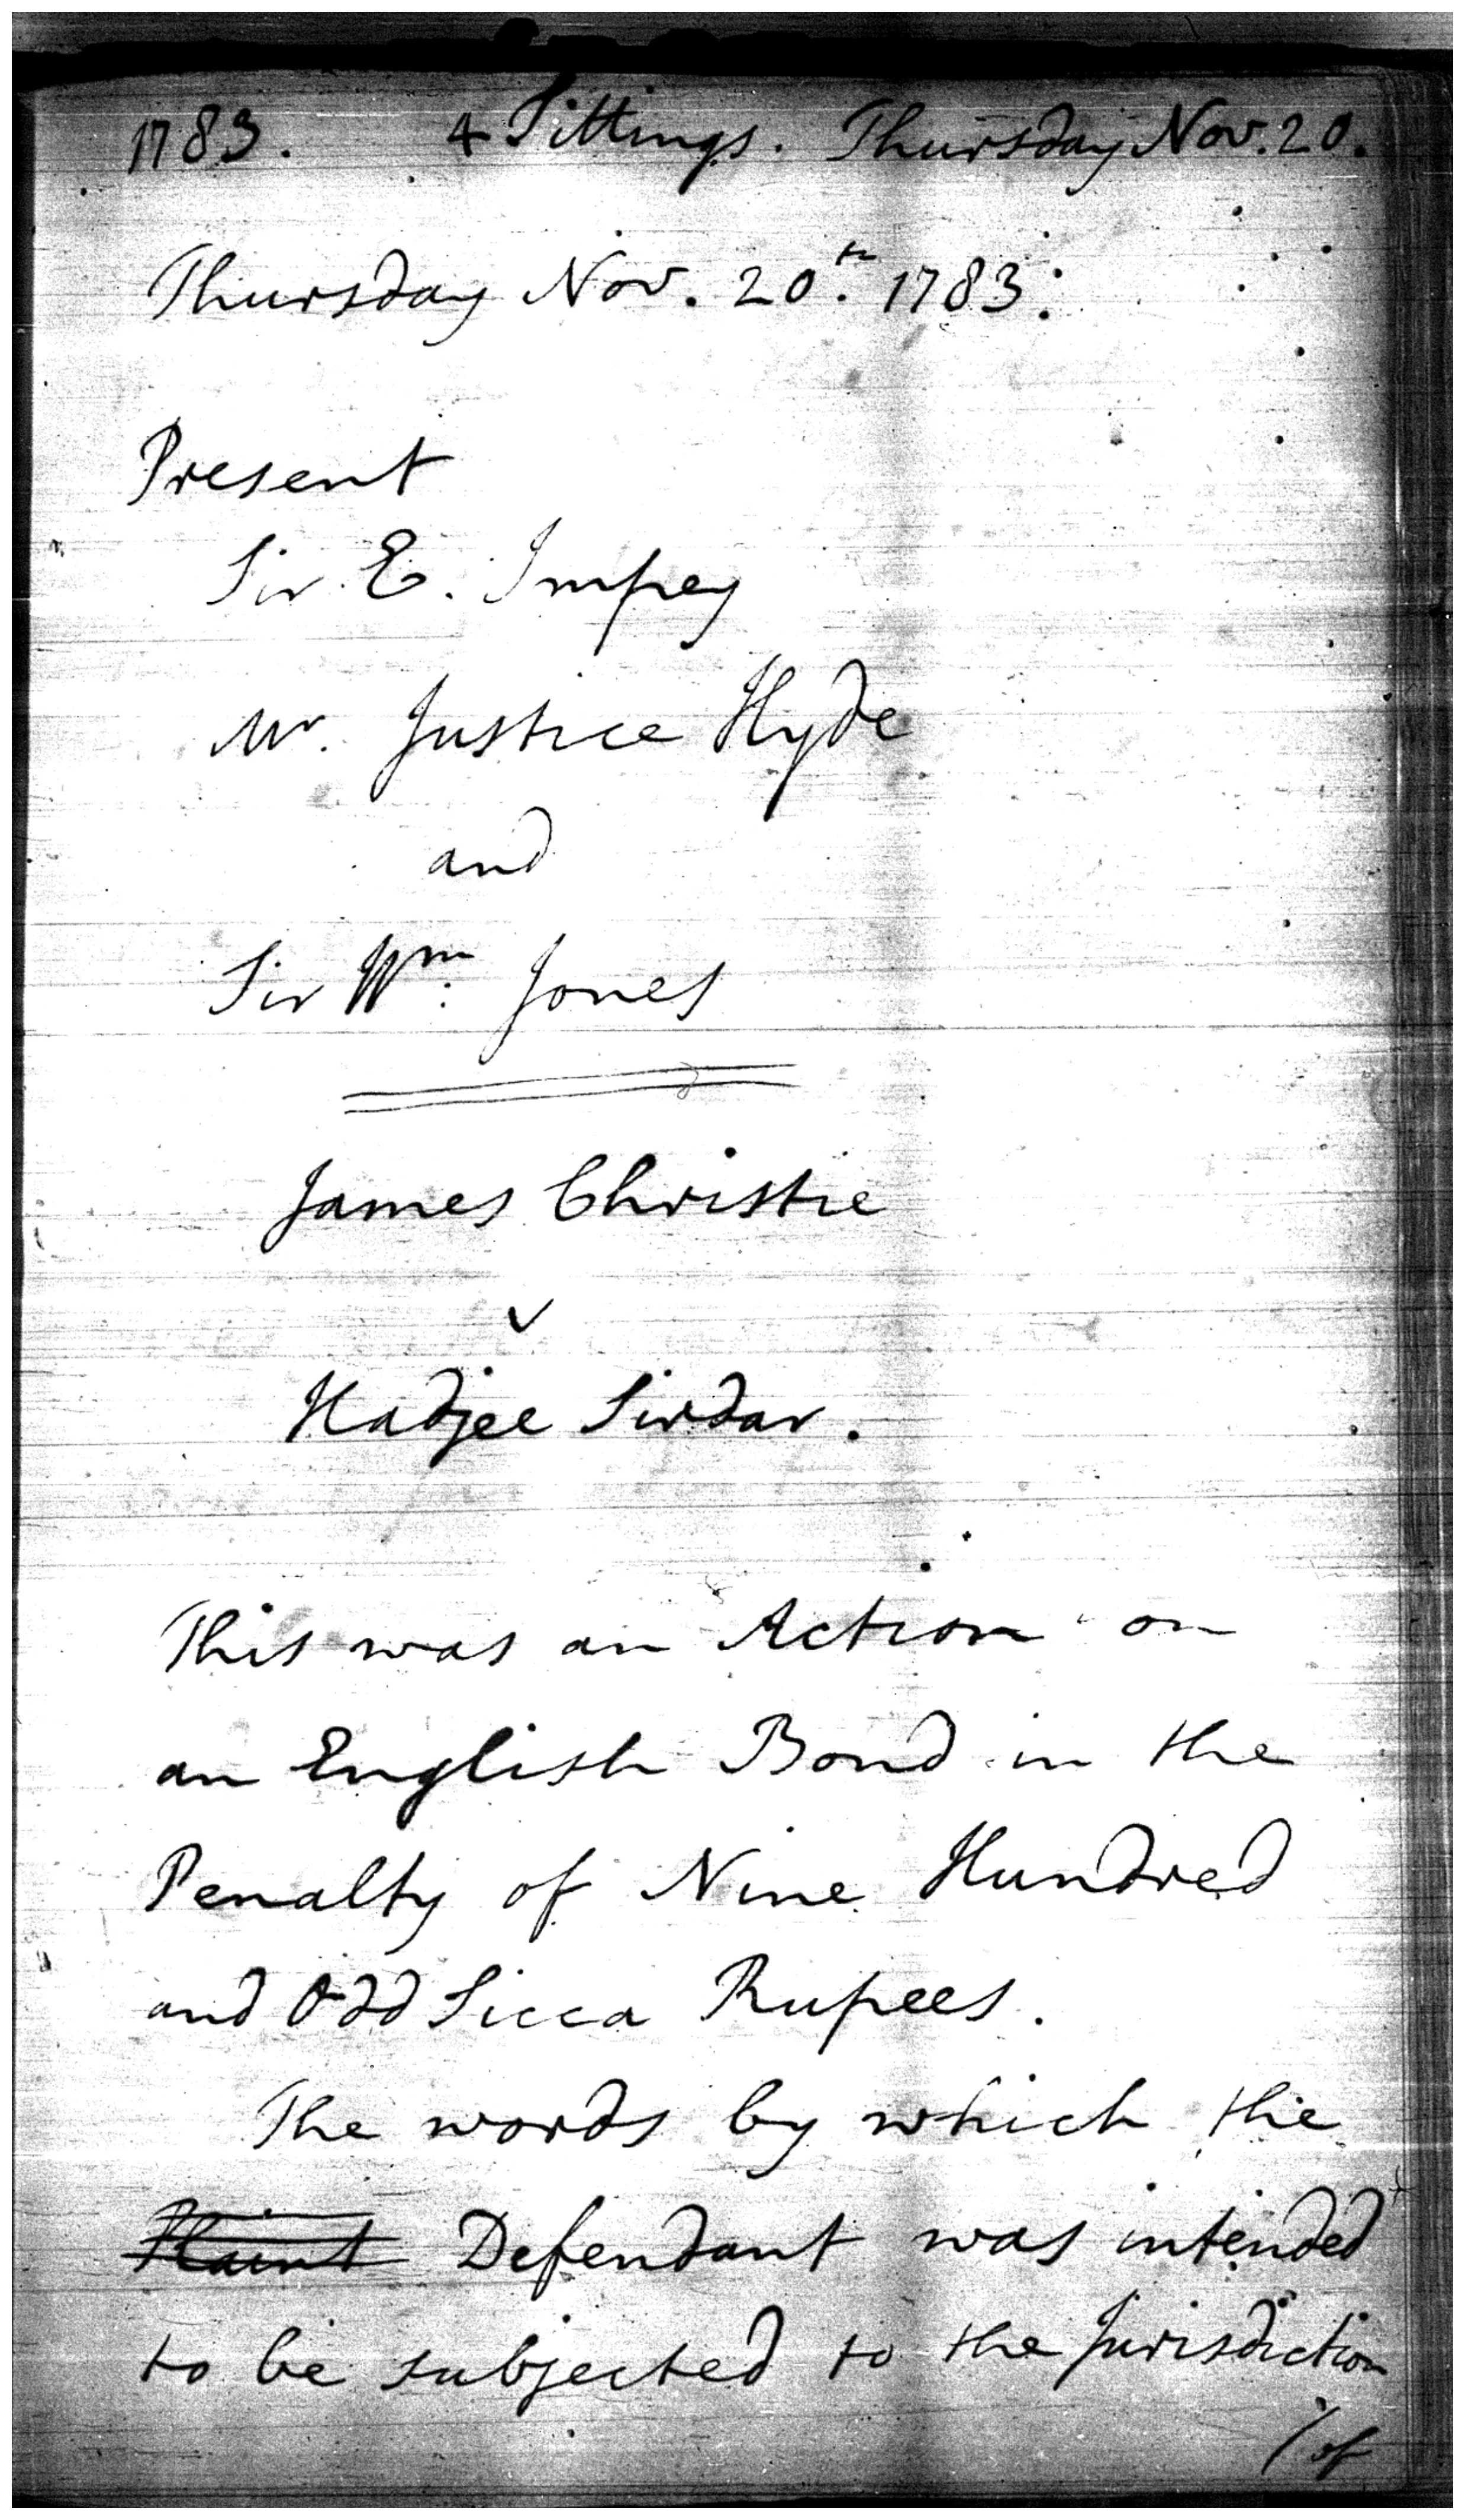 1783. 4 Sittings. Thursday Nov. 20.
Thursday Nov. 20th. 1783.
Present
Sir E. Impey
Mr. Justice Hyde
and
Sir Wm: Jones
James Christie
v
Hadjee Sirdar.
This was an Action on
an English Bond in the
Penalty of Nine Hundred
and Odd Sicca Rupees.
The words by which the
Plaint Defendant was intended
to be subjected to the Jurisdiction
/of